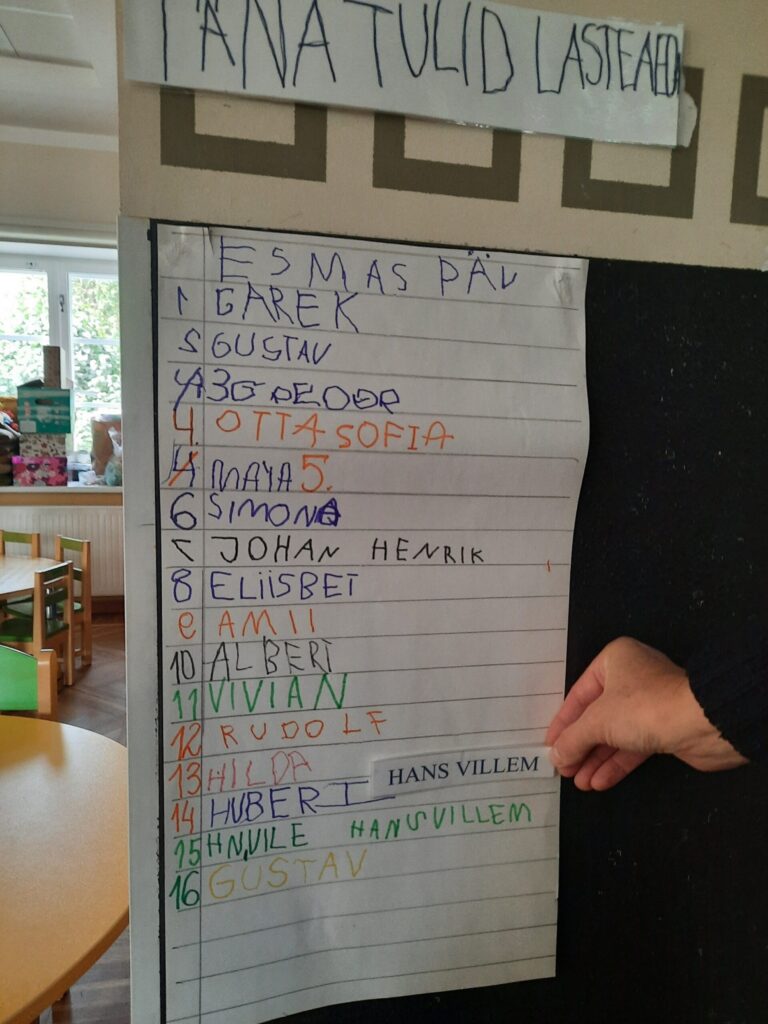 TÄNA TULID LASTEAEDA
ESMAS PÄV
1 GAREK
2 GUSTAV
3
4. OTTA SOFIA
4 MAYA 5.
6 SIMONA
7 JOHAN HENRIK
8 ELIISBET
9 AMII
10 ALBERT
11 VIVIAN
12 RUDOLF
13 HILDA
HANS VILLEM
14 HUBERT
15 HN,VILE HANSVILLEM
16 GUSTAV